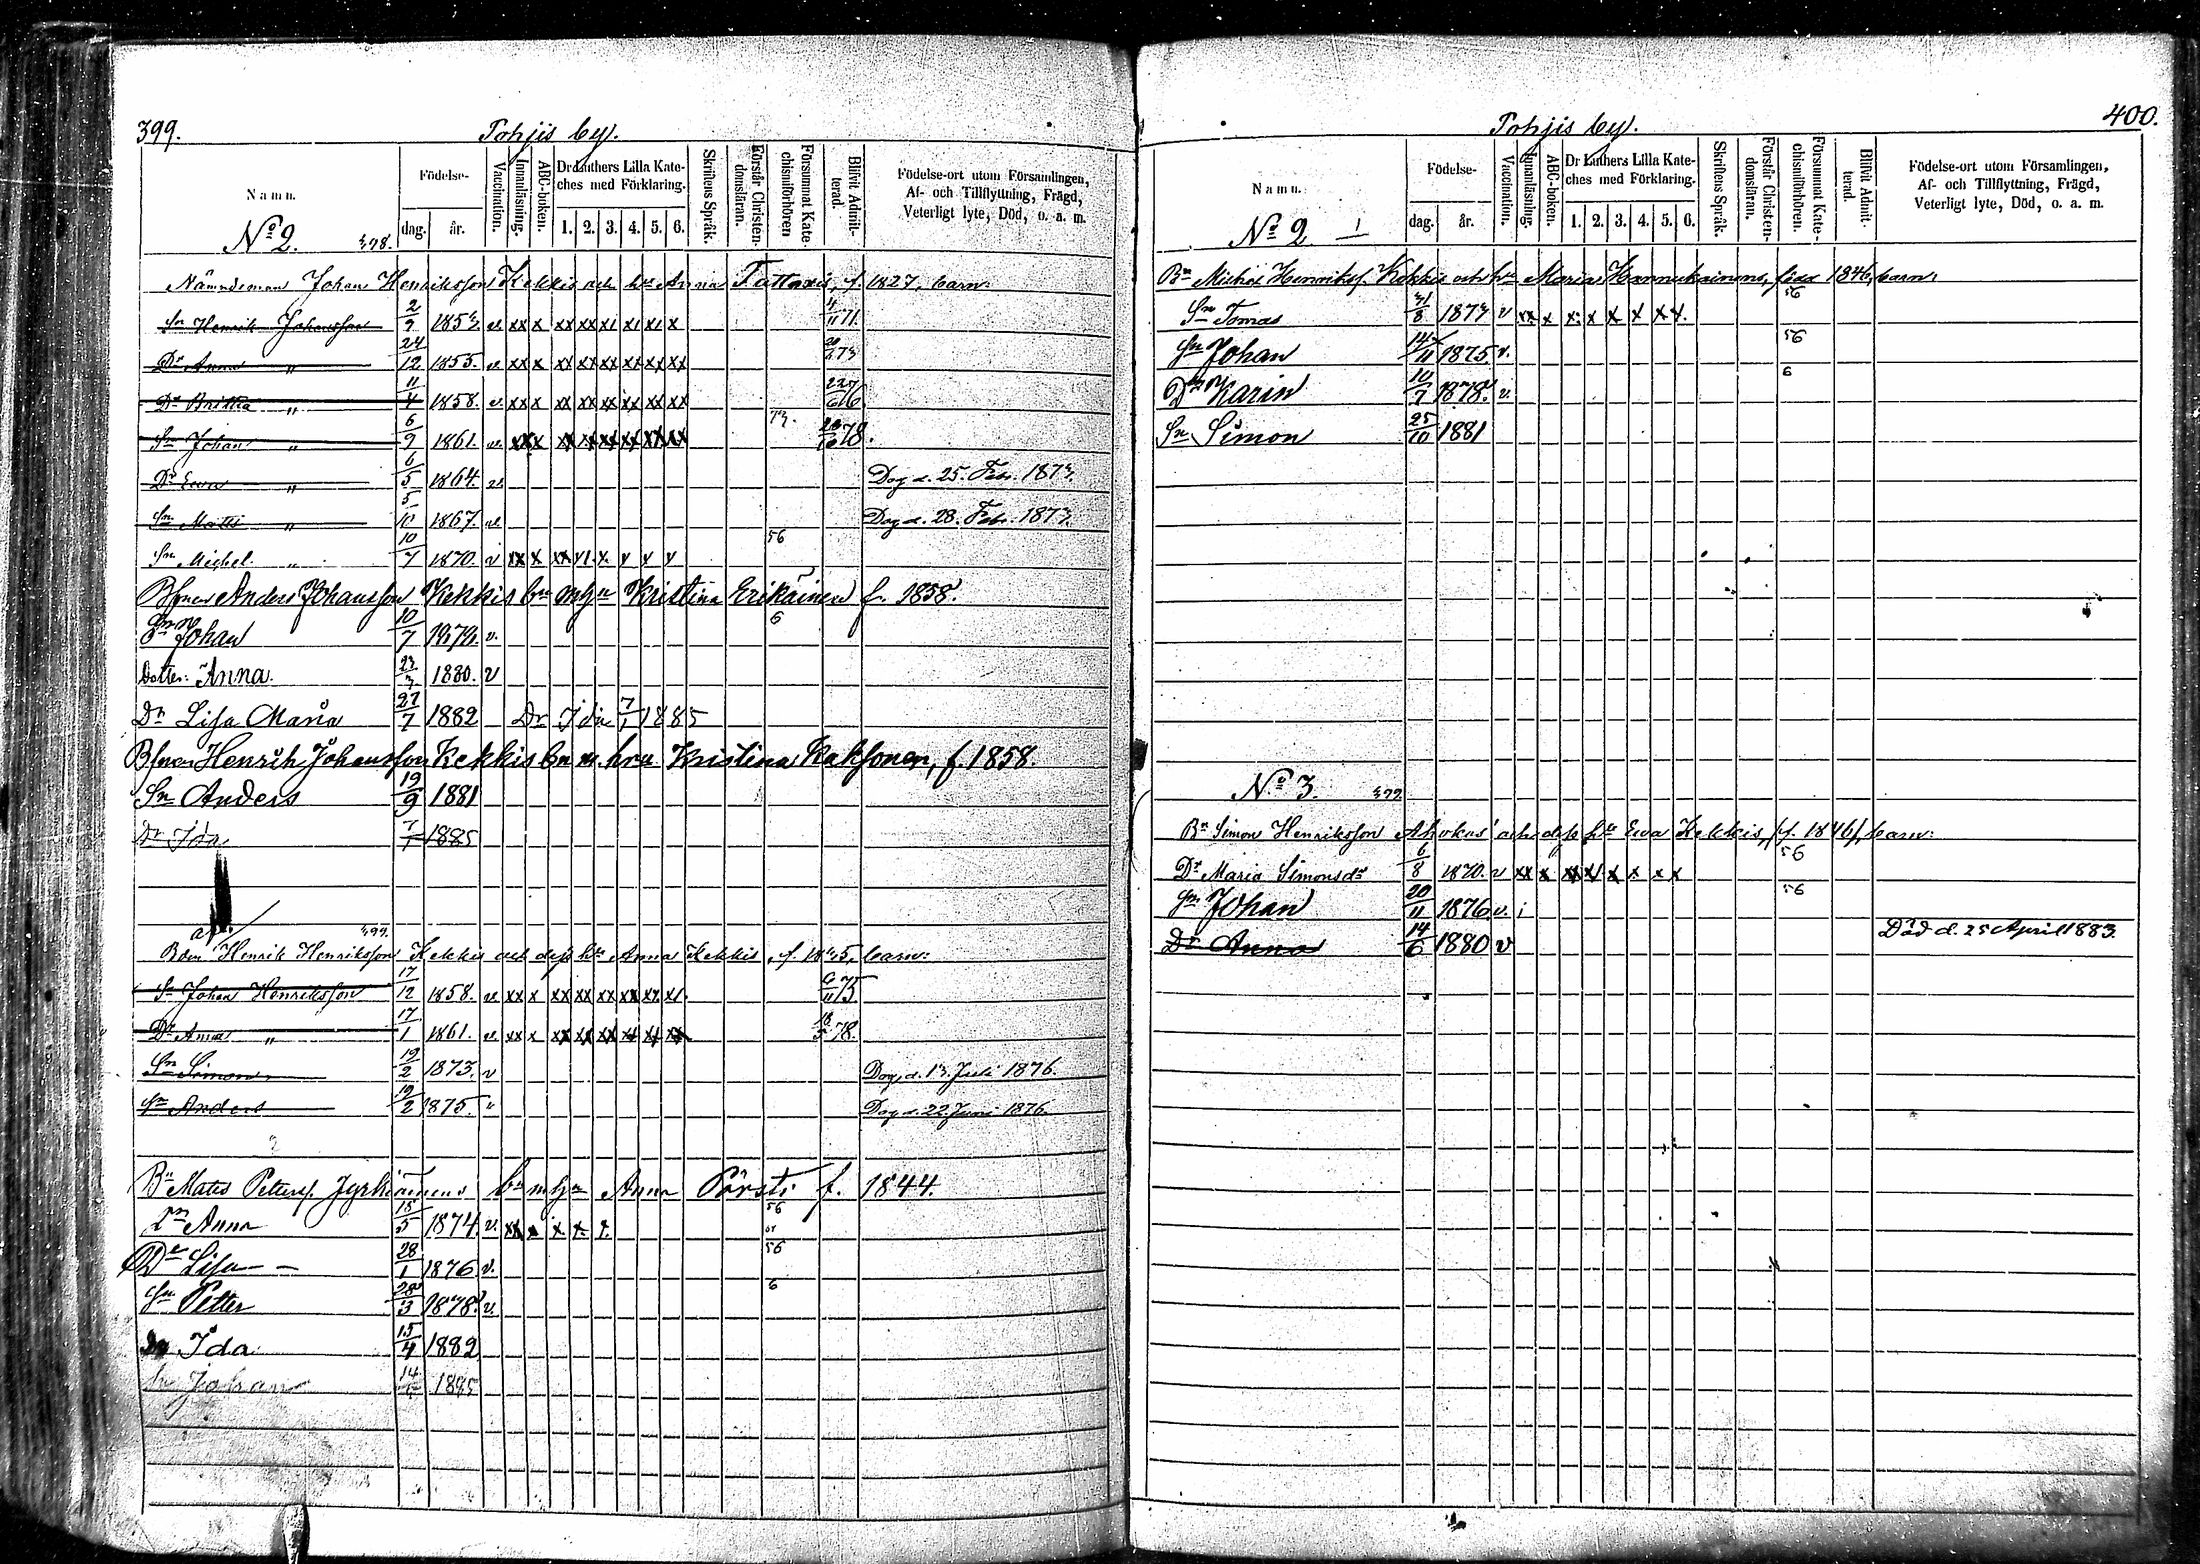 399.
Pohjis by.
Namn.
Födelse-
dag.
år.
Vaccination.
Innanläsning.
ABC-boken.
Dr Luthers Lilla Kate-
ches med Förklaring.
1. 2. 3. 4. 5. 6.
Skriftens Språk.
Förstår Christen-
domsläran.
Försummat Kate-
chismiförhören
Blifvit Admit-
terad.
Födelse-ort utom Församlingen,
Af- och Tillflyttning, Frägd,
Veterligt lyte, Död, o. a. m.
No 2. 398.
Nämndeman Johan Henriksson Kekkis och hu Anna Tattaris, f. 1827, barn:
Sn Henrik Johansson 2/9 1853 v. xx x xx xx xi xi xi x 4/11 71.
Dr Anna " 24/12 1855. v. xx x xx xx xx xx xx xx
Dr Britha " 11/4 1858. v. xx x xx xx xx xx xx xx
Sn Johan " 6/9 1861. v. xx x xx xx xx xx xx xx 73. 78.
Dr Ewa " 6/5 1864. v. Dog d. 25. Febr. 1873.
Sn Matts " 5/10 1867. v. Dog d. 28. Febr. 1873.
Sn Michel " 10/7 1870. v xx x 56
Bsonen Anders Johansson Kekkis bn m hu Kristina Erikäinen f. 1858.
Sn Johan 10/7 1879. v. 6
Dotter: Anna. 1880. v
Dr Lisa Maria 27/7 1882 Dr Ida 7/1 1885
Bsonen Henrik Johansson Kekkis bn m. hru Kristina Kaksonen, f. 1858.
Sn Anders 19/9 1881
Dr Ida 7/1 1885
a/. 399.
Bdn Henrik Henriksson Kekkis och dess hu Anna Kekkis, f. 1835, barn:
Sn Johan Henriksson 17/12 1858. v. xx x xx xx xx xx xx xi. 6/11 75.
Dr Anna " 17/1 1861. v. xx x xx xx xx xx xx xx 78.
Sn Simon 19/2 1873. v Dog d. 13. Juli 1876.
Sn Anders 19/2 1875. " Dog d. 22. Juni 1876.
Bn Mats Petters. Jyrkiäinens bn m hu Anna Pärsti f. 1844.
Dr Anna 15/5 1874. v. 56
Dr Lisa 28/1 1876 v. 56
Sn Petter 28/3 1878 v. 6
Dr Ida 15/4 1882
Sn Johan 1885
400.
Pohjis by.
Namn.
Födelse-
dag.
år.
Vaccination.
Innanläsning.
ABC-boken.
Dr Luthers Lilla Kate-
ches med Förklaring.
1. 2. 3. 4. 5. 6.
Skriftens Språk.
Förstår Christen-
domsläran.
Försummat Kate-
chismiförhören.
Blifvit Admit-
terad.
Födelse-ort utom Församlingen,
Af- och Tillflyttning, Frägd,
Veterligt lyte, Död, o. a. m.
No 2
Bn Michel Henrikss. Kekkis och hu Maria född 1846, barn:
Sn Tomas 31/8 1873 v 56
Sn Johan 14/11 1875 v. 56
Dr Karin 10/7 1878. v. 6
Sn Simon 25/10 1881
No 3. 399.
Bn Simon Henriksson Ahokas och dess hu Ewa Kekkis, f. 1846, barn:
Dr Maria Simonsdr 6/8 1870. v xx x 56
Sn Johan 20/11 1876 v. i 56
Dr Anna 14/6 1880 v Död d. 25 April 1883.